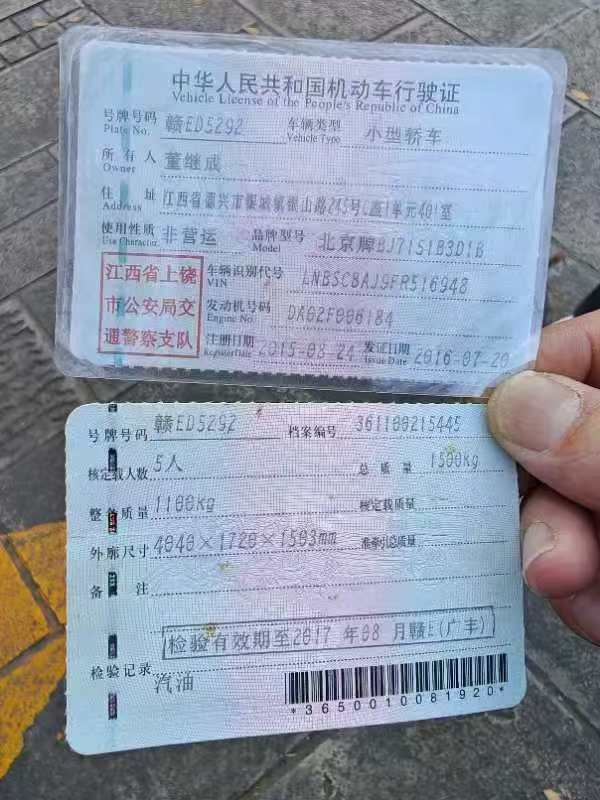 中华人民共和国机动车行驶证
Vehicle License of the People's Republic of China
号牌号码 赣ED5292 车辆类型 小型轿车
Plate No. Vehicle Type
所有人 董继成
Owner
住址 江西省德兴市银城镇银山路245号C栋1单元401室
Address
使用性质 非营运 品牌型号 北京牌BJ7151B3D1B
Use Character Model
江西省上饶
市公安局交
通警察支队
车辆识别代号 LNBSCBAJ9FR516948
VIN
发动机号码 DK02F006184
Engine No.
注册日期 2015-08-24 发证日期 2016-07-20
Register Date Issue Date
号牌号码 赣ED5292 档案编号 361100215445
核定载人数 5人 总质量 1500kg
整备质量 1100kg 核定载质量
外廓尺寸 4040×1720×1503mm 准牵引总质量
备注
检验有效期至2017 年08 月赣E(广丰)
检验记录
汽油
*3650010081920*